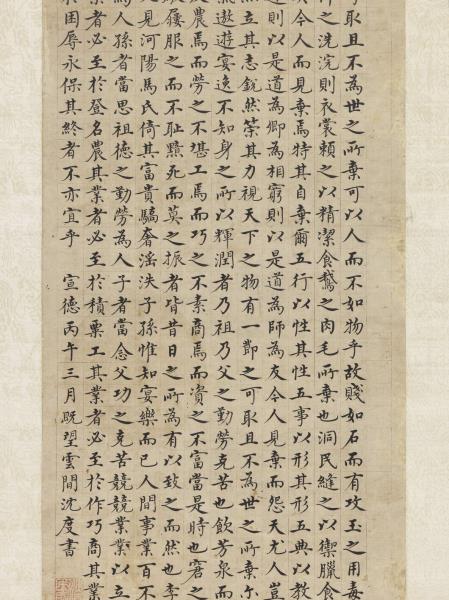 可取且不為世之所棄可以人而不如物乎故賤如石而有攻玉之用毒
之洗浣則衣裳賴之以精潔食鵝之肉毛所棄也洞民縫之以禦臘食
今人而見棄焉特其自棄爾五行以性其性五事以形其形五典以教
達則以是道為卿為相窮則以是道為師為友今人見棄而怨天尤人豈
然立其志銳然策其力視天下之物有一節之可取且不為世之所棄尓
遨遊宴逸不知身之所以輝潤者乃祖乃父之勤勞克苦也飲芳泉而
農焉而勞之不堪工焉而巧之不素商焉而資之不富當是時也窘之
服之而不耻死而莫之振者皆昔日之所為有以致之而然也李
人見河陽馬氏倚其富貴驕奢淫泆子孫惟知宴樂而已人間事業百不
為人孫者當思祖德之勤勞為人子者當念父功之克苦競競業業以立
者必至於登名農其業者必至於積粟工其業者必至於作巧商其業
於困辱永保其終者不亦宜乎 宣德丙午三月既望雲間沈度書